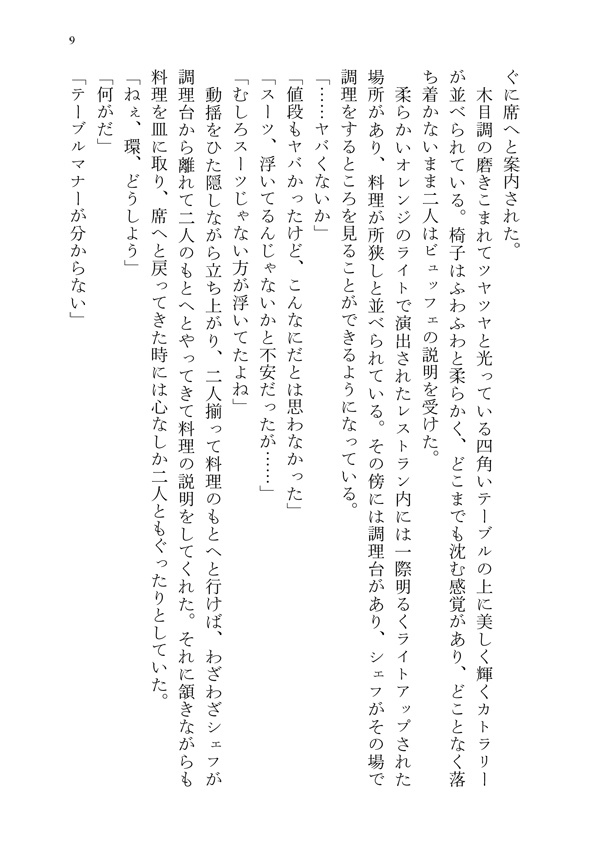 9
ぐに席へと案内された。
木目調の磨きこまれてツヤツヤと光っている四角いテーブルの上に美しく輝くカトラリー
が並べられている。椅子はふわふわと柔らかく、どこまでも沈む感覚があり、どことなく落
ち着かないまま二人はビュッフェの説明を受けた。
柔らかいオレンジのライトで演出されたレストラン内には一際明るくライトアップされた
場所があり、料理が所狭しと並べられている。その傍には調理台があり、シェフがその場で
調理をするところを見ることができるようになっている。
「……ヤバくないか」
「値段もヤバかったけど、こんなにだとは思わなかった」
「スーツ、浮いてるんじゃないかと不安だったが……」
「むしろスーツじゃない方が浮いてたよね」
動揺をひた隠しながら立ち上がり、二人揃って料理のもとへと行けば、わざわざシェフが
調理台から離れて二人のもとへとやってきて料理の説明をしてくれた。それに頷きながらも
料理を皿に取り、席へと戻ってきた時には心なしか二人ともぐったりとしていた。
「ねぇ、環、どうしよう」
「何がだ」
「テーブルマナーが分からない」